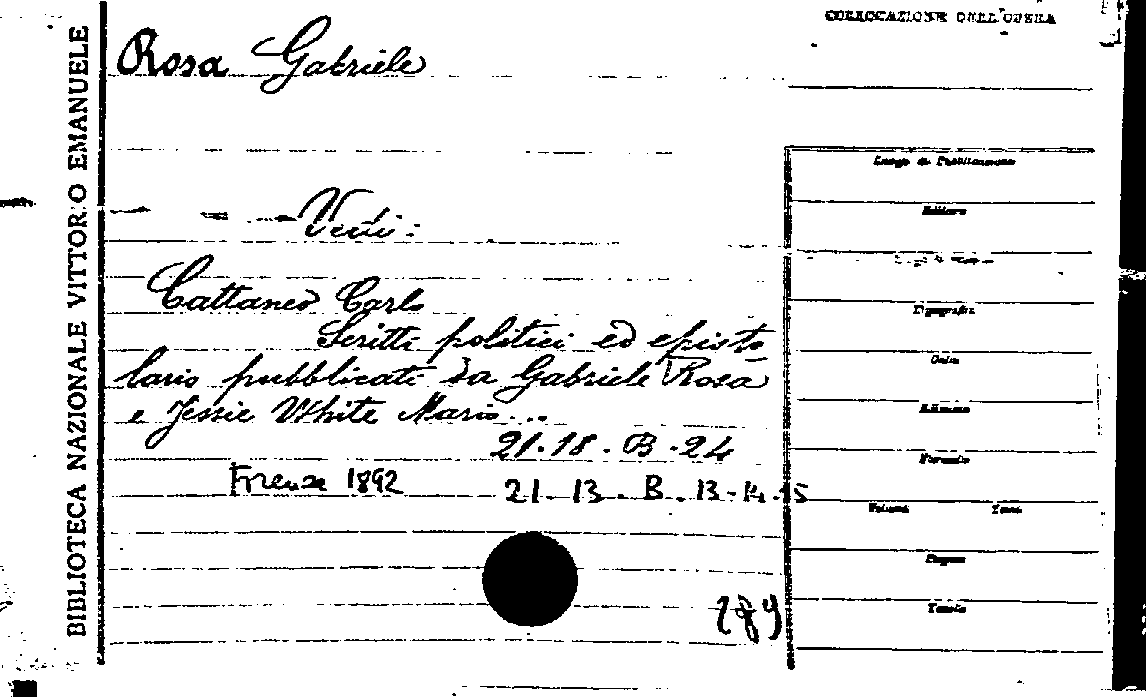 BIBLIOTECA NAZIONALE VITTORIO EMANUELE
COLLOCAZIONE DELL'OPERA
Rosa Gabriele
Vedi:
Cattaneo Carlo
Scritti politici ed episto
lario pubblicati da Gabriele Rosa
e Jessie White Mario...
21.18.B.24
Firenze 1892
21.13.B.13-14-15
289
Luogo di Pubblicazione
Editore
Tipografia
Data
Edizione
Formato
Volumi Tomi
Pagine
Tavole